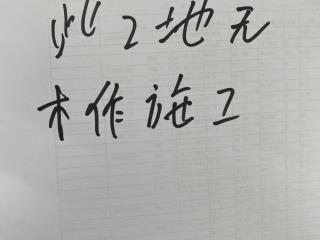 此工地无
木作施工